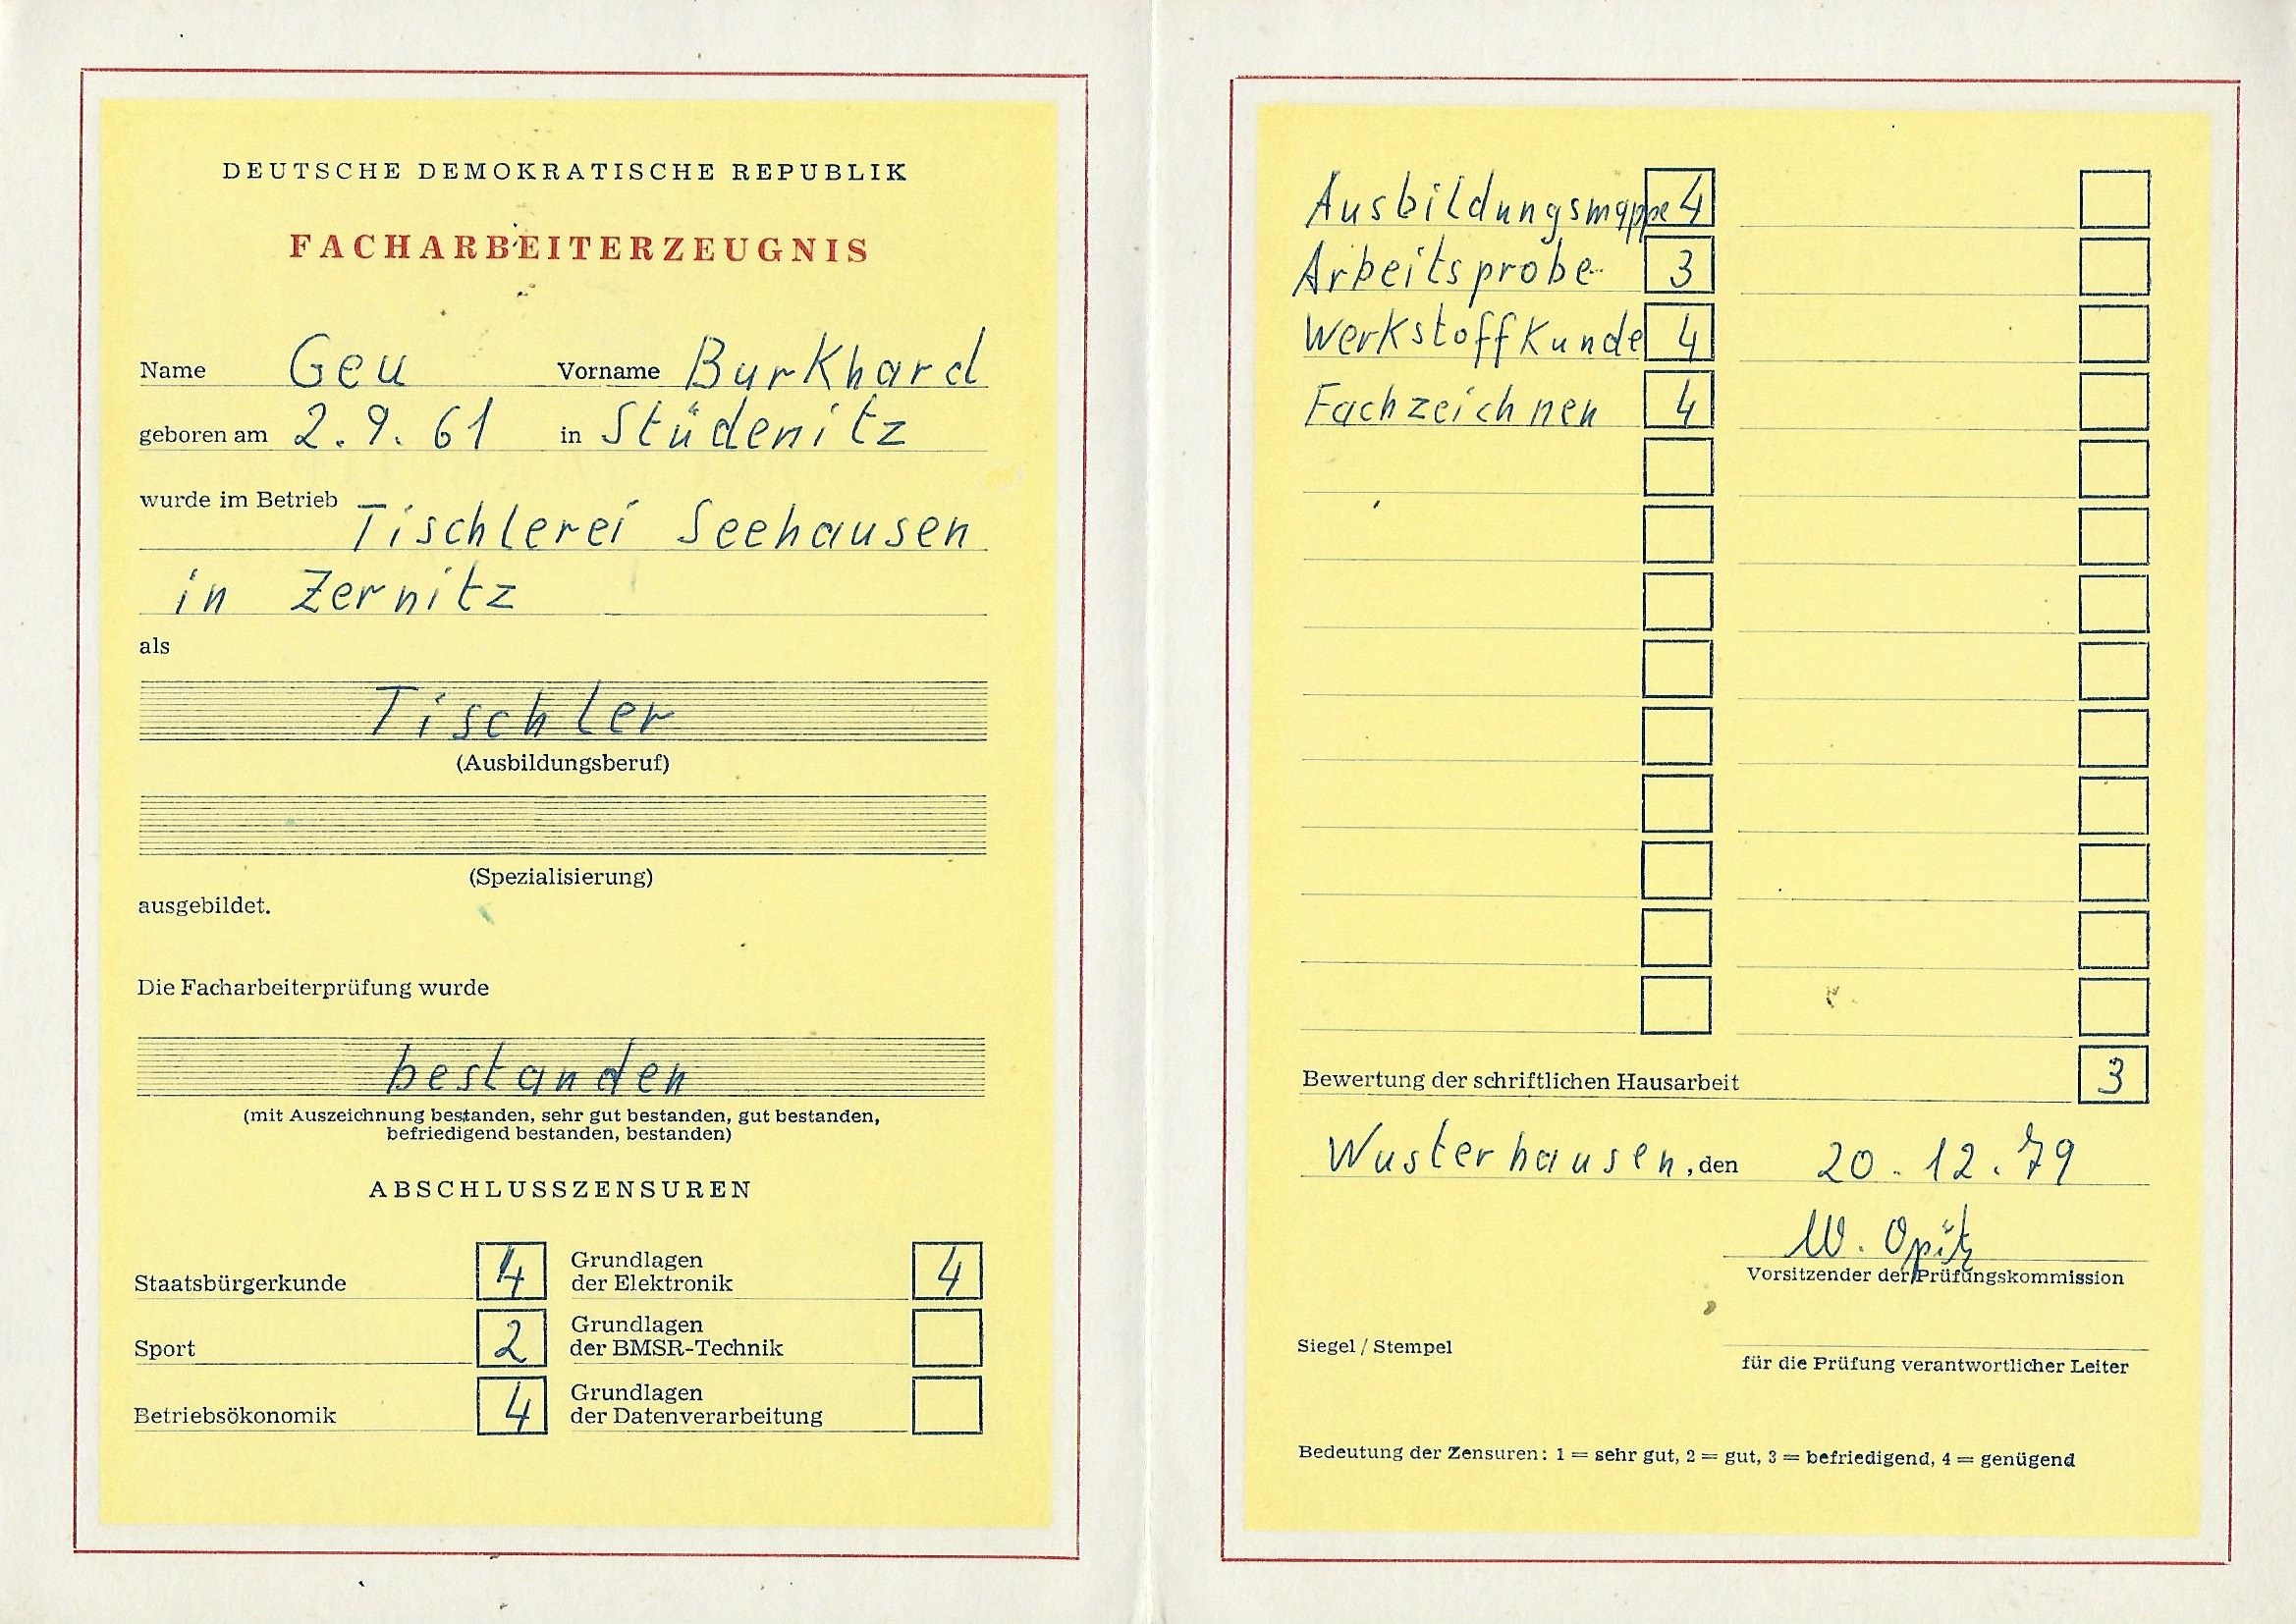 DEUTSCHE DEMOKRATISCHE REPUBLIK
FACHARBEITERZEUGNIS
Name Geu Vorname Burkhard
geboren am 2.9.61 in Stüdenitz
wurde im Betrieb Tischlerei Seehausen
in Zernitz
als
Tischler
(Ausbildungsberuf)
(Spezialisierung)
ausgebildet.
Die Facharbeiterprüfung wurde
bestanden
(mit Auszeichnung bestanden, sehr gut bestanden, gut bestanden,
befriedigend bestanden, bestanden)
ABSCHLUSSZENSUREN
Staatsbürgerkunde 4
Grundlagen
der Elektronik 4
Sport 2
Grundlagen
der BMSR-Technik
Betriebsökonomik 4
Grundlagen
der Datenverarbeitung
Ausbildungsmappe 4
Arbeitsprobe 3
Werkstoffkunde 4
Fachzeichnen 4
Bewertung der schriftlichen Hausarbeit 3
Wusterhausen, den 20.12.79
W. Opitz
Vorsitzender der Prüfungskommission
Siegel / Stempel
für die Prüfung verantwortlicher Leiter
Bedeutung der Zensuren: 1 = sehr gut, 2 = gut, 3 = befriedigend, 4 = genügend